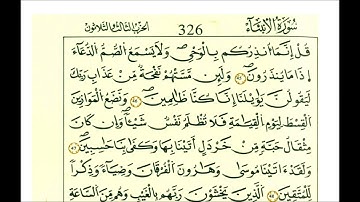 سُورَةُ الْأَنْبِيَاءِ 326 الحزب الثالث والثلاثون
قُلْ إِنَّمَا أُنذِرُكُم بِالْوَحْيِ وَلَا يَسْمَعُ الصُّمُّ الدُّعَاءَ
إِذَا مَا يُنذَرُونَ ٤٥ وَلَئِن مَّسَّتْهُمْ نَفْحَةٌ مِّنْ عَذَابِ رَبِّكَ
لَيَقُولُنَّ يَا وَيْلَنَا إِنَّا كُنَّا ظَالِمِينَ ٤٦ وَنَضَعُ الْمَوَازِينَ
الْقِسْطَ لِيَوْمِ الْقِيَامَةِ فَلَا تُظْلَمُ نَفْسٌ شَيْئًا وَإِن كَانَ
مِثْقَالَ حَبَّةٍ مِّنْ خَرْدَلٍ أَتَيْنَا بِهَا وَكَفَىٰ بِنَا حَاسِبِينَ ٤٧
وَلَقَدْ آتَيْنَا مُوسَىٰ وَهَارُونَ الْفُرْقَانَ وَضِيَاءً وَذِكْرًا
لِّلْمُتَّقِينَ ٤٨ الَّذِينَ يَخْشَوْنَ رَبَّهُم بِالْغَيْبِ وَهُم مِّنَ السَّاعَةِ